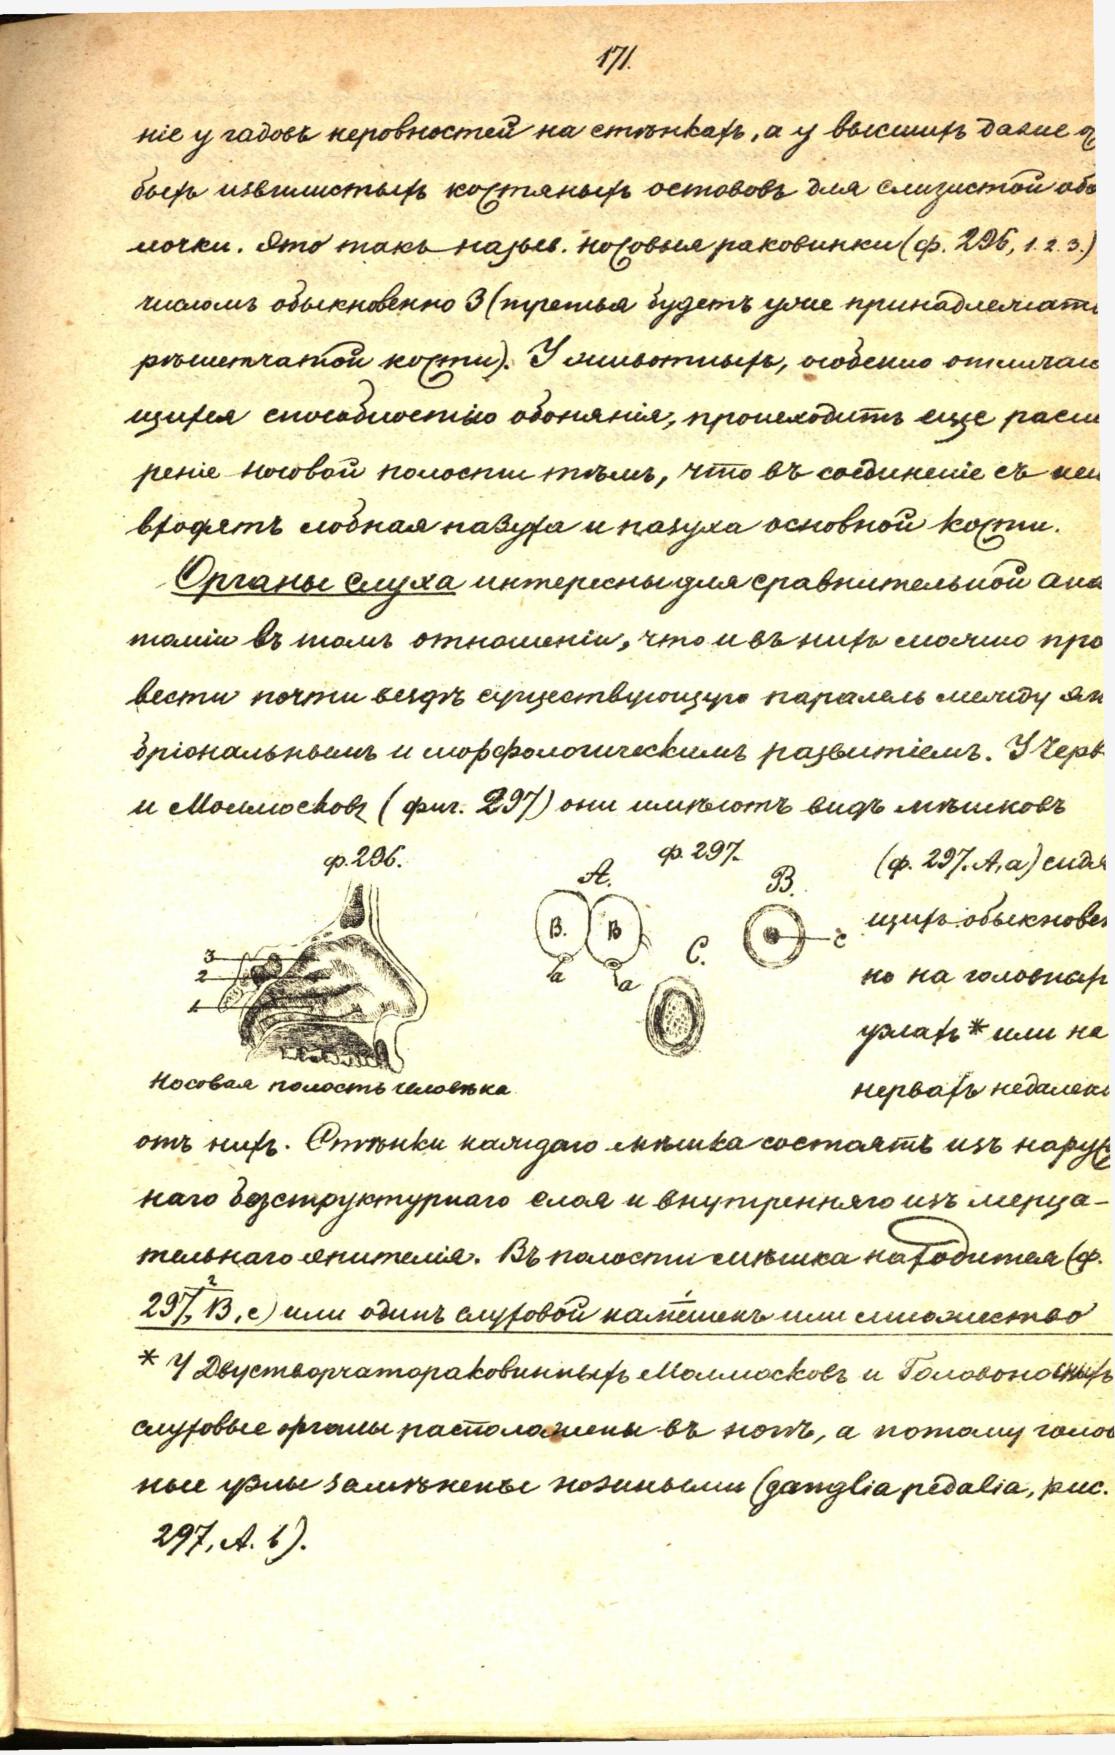 171.
ніе у гадовъ неровностей на стѣнкахъ, а у высшихъ даже
быхъ извилистыхъ костяныхъ остововъ для слизистой обо
лочки. Это такъ назыв. носовыя раковинки (ф. 296, 1. 2. 3.)
числомъ обыкновенно 3 (третья будетъ уже принадлежать
рѣшетчатой кости). У животныхъ, особенно отличаю
щихся способностію обонянія, происходитъ еще расши
реніе носовой полости тѣмъ, что въ соединеніе съ ней
входятъ лобная пазуха и пазуха основной кости.
Органы слуха интересны для сравнительной ана
томіи въ томъ отношеніи, что и въ нихъ можно про
вести почти вездѣ существующую паралель между эм
бріональнымъ и морфологическимъ развитіемъ. У Черв
и Моллюсковъ (фиг. 297) они имѣютъ видъ мѣшковъ
ф. 296.
3
2
1
Носовая полость человѣка
ф. 297.
A.
B.
B
a
a
B.
c
C.
(ф. 297. A, a) сидя
щихъ обыкновен
но на головныхъ
узлахъ * или на
нервахъ недалеко
отъ нихъ. Стѣнки каждаго мѣшка состоятъ изъ наруж
наго безструктурнаго слоя и внутренняго изъ мерца-
тельнаго эпителія. Въ полости мѣшка находится (ф.
297, B, c) или одинъ слуховой камешекъ или множество
* У Двустворчатораковинныхъ Моллюсковъ и Головоногихъ
слуховые органы расположены въ ногѣ, а потому голов
ные узлы замѣнены ножными (ganglia pedalia, рис.
297, A. b).